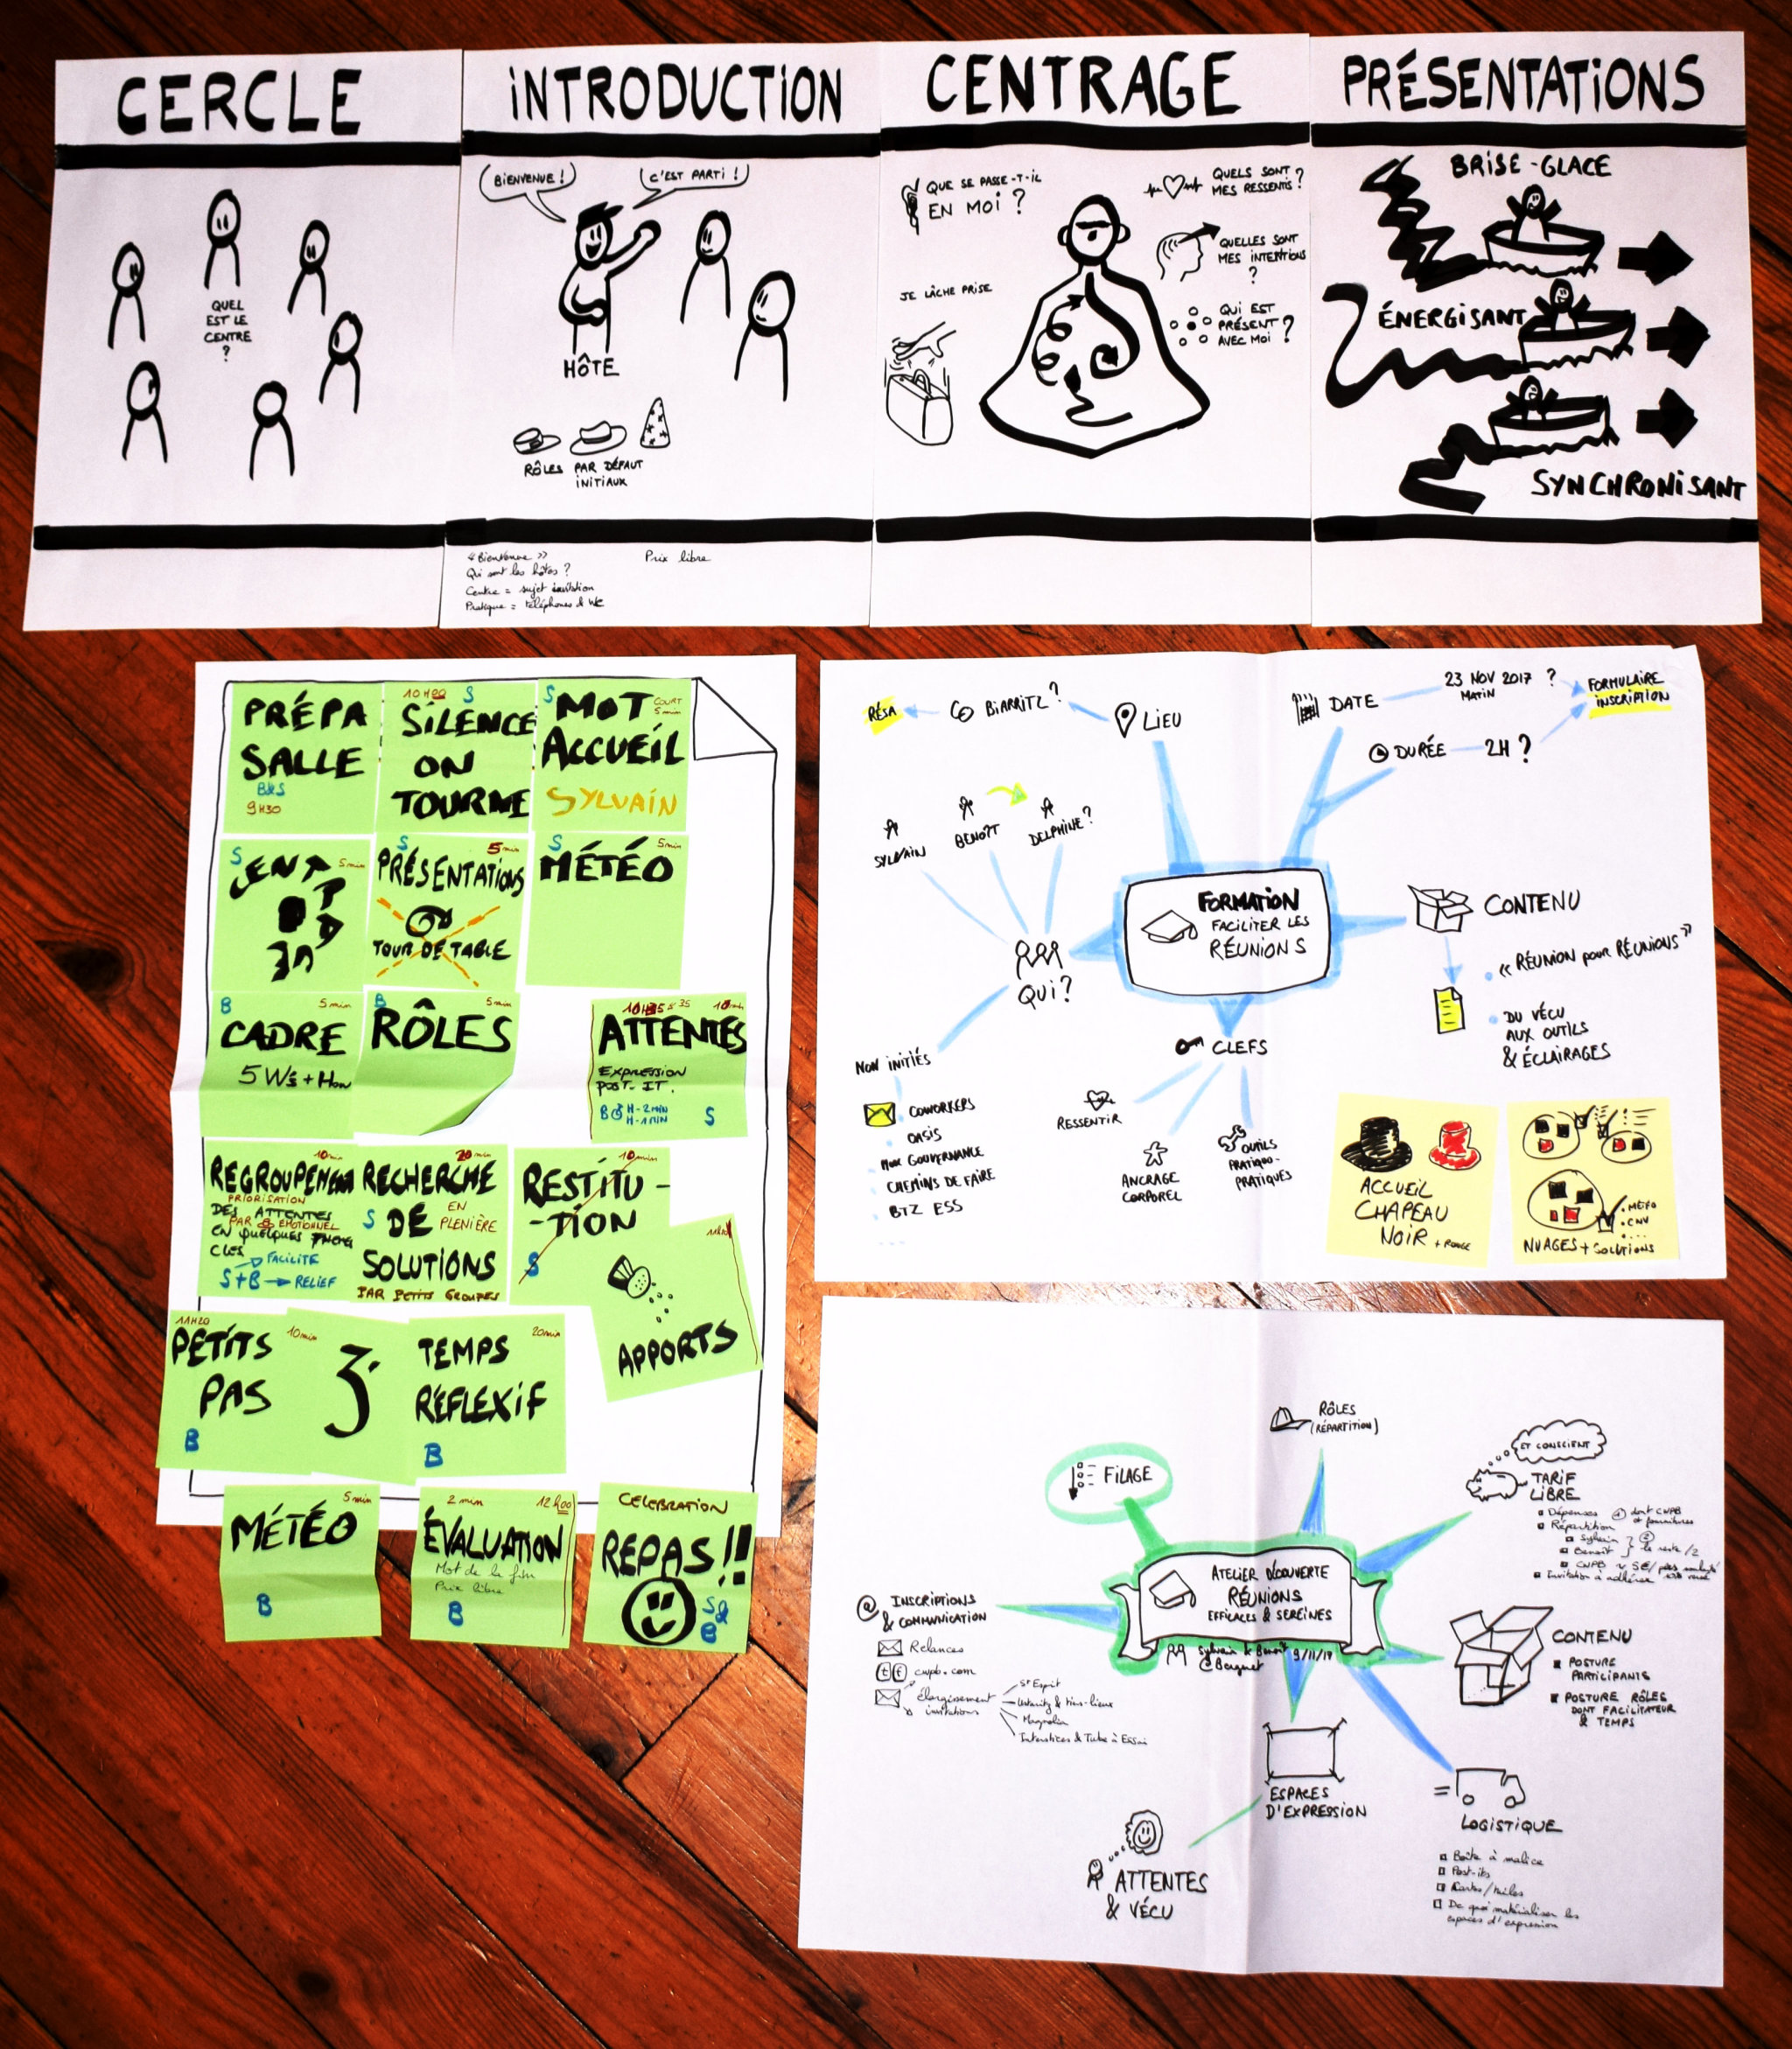 CERCLE
QUEL
EST LE
CENTRE
?
INTRODUCTION
BIENVENUE !
C'EST PARTI !
HÔTE
RÔLES PAR DÉFAUT
INITIAUX
« Bienvenue »
Qui sont les hôtes ?
Centre = sujet invitation
Pratique = téléphones & WC
Prix libre
CENTRAGE
QUE SE PASSE-T-IL
EN MOI ?
QUELS SONT
MES RESSENTIS ?
QUELLES SONT
MES INTENTIONS
?
JE LÂCHE PRISE
QUI EST
PRÉSENT ?
AVEC MOI
PRÉSENTATIONS
BRISE-GLACE
ÉNERGISANT
SYNCHRONISANT
PRÉPA
SALLE
B&S
9H30
10H00 S
SILENCE
ON
TOURNE
S
MOT COURT
5min
ACCUEIL
SYLVAIN
S
5min
CENTR
S 5min
PRÉSENTATIONS
TOUR DE TABLE
S 5min
MÉTÉO
B 5min
CADRE
5 W's + How
B 5min
RÔLES
10min
ATTENTES
EXPRESSION
POST-IT.
B H-2MIN
H-1MIN
S
10min
REGROUPEMENT
PRIORISATION
DES ATTENTES
PAR EMOTIONNEL
EN QUELQUES
CLEFS
FACILITE
S+B → RELIEF
20min
RECHERCHE
S DE EN
PLENIÈRE
SOLUTIONS
PAR PETITS GROUPES
10min
RESTITU-
-TION
S
APPORTS
11H20
10min
PETITS
PAS
B
3'
20min
TEMPS
RÉFLEXIF
B
5min
MÉTÉO
B
2 min 12h00
ÉVALUATION
Mot de la fin
Prix libre
B
CELEBRATION
REPAS !!
S&
B
RÉSA
BIARRITZ ?
LIEU
DATE
23 NOV 2017 ?
MATIN
FORMULAIRE
INSCRIPTION
DURÉE
2H ?
SYLVAIN
BENOÎT
DELPHINE ?
FORMATION
FACILITER LES
RÉUNIONS
QUI ?
CONTENU
« RÉUNION pour RÉUNIONS »
DU VÉCU
AUX OUTILS
& ÉCLAIRAGES
CLEFS
RESSENTIR
ANCRAGE
CORPOREL
OUTILS
PRATIQUO-
PRATIQUES
NON INITIÉS
COWORKERS
OASIS
GOUVERNANCE
CHEMINS DE FAIRE
BTZ ESS
ACCUEIL
CHAPEAU
NOIR + ROUGE
. MÉTÉO
. CNV
NUAGES + SOLUTIONS
FILAGE
RÔLES
(RÉPARTITION)
ET CONSCIENT
TARIF
LIBRE
Dépenses ① dont CWPB
et fournitures
Répartition
Sylvain
Benoît
② le reste /2
Invitation à adhérer
ATELIER DÉCOUVERTE
RÉUNIONS
EFFICACES & SEREINES
Sylvain & Benoît 9/11/17
INSCRIPTIONS
& COMMUNICATION
Relances
cwpb.com
Élargissement
invitations
St Esprit
& tiers-lieux
Magnolia
Interstices & Tube à Essai
CONTENU
POSTURE
PARTICIPANTS
POSTURE RÔLES
DONT FACILITATEUR
& TEMPS
ESPACES
D'EXPRESSION
ATTENTES
& VÉCU
LOGISTIQUE
Boîte à malice
Post-its
De quoi matérialiser les
espaces d'expression